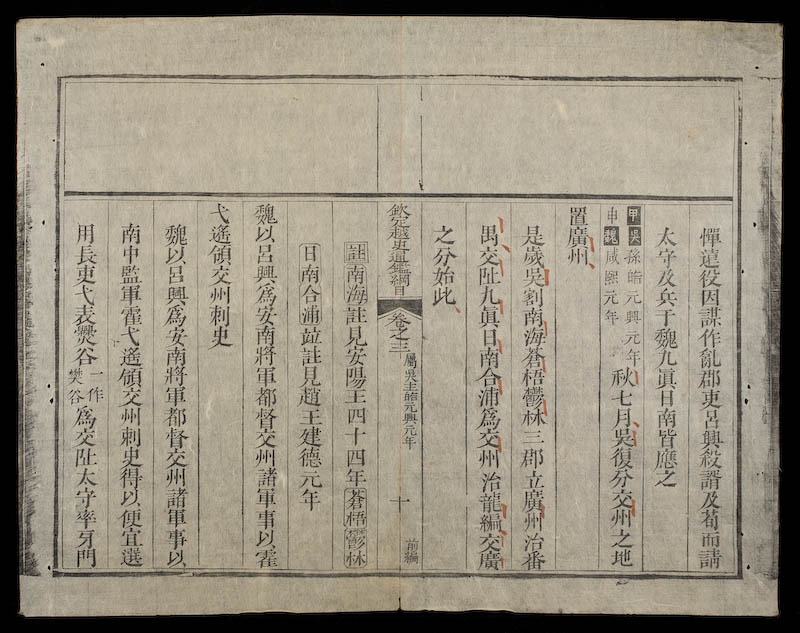 憚遠役因謀作亂郡吏呂興殺諝及荀而請
太守及兵于魏九眞日南皆應之
甲申 吳孫皓元興元年 魏咸熙元年 秋七月吳復分交州之地
置廣州
是歲吳割南海蒼梧鬱林三郡立廣州治番
禺交阯九眞日南合浦爲交州治龍編交廣
之分始此
欽定越史通鑑綱目 卷之三 屬吳主皓元興元年 十 前編
註南海註見安陽王四十四年蒼梧鬱林
日南合浦竝註見趙王建德元年
魏以呂興爲安南將軍都督交州諸軍事以霍
弋遙領交州刺史
魏以呂興爲安南將軍都督交州諸軍事以
南中監軍霍弋遙領交州刺史得以便宜選
用長吏弋表爨谷一作樊谷爲交阯太守率牙門